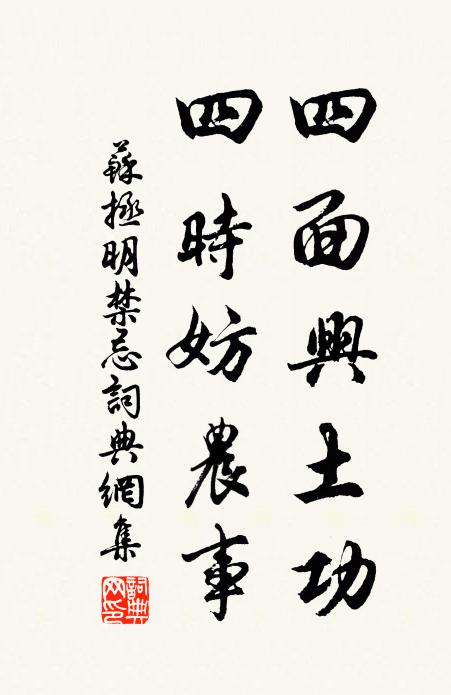 四面興土功
四時妨農事
蘇拯明禁忌詞典網集
詞典网印